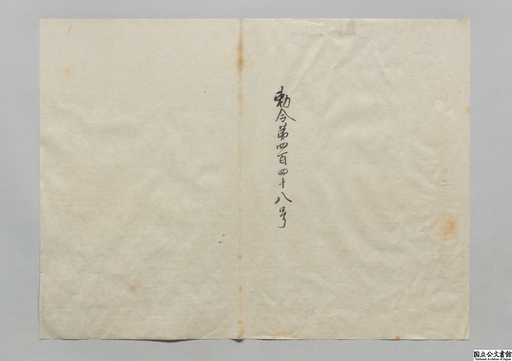 勅令第四百四十八号
国立公文書館
National Archives of Japan